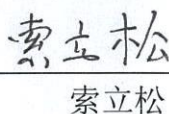 索立松
索立松